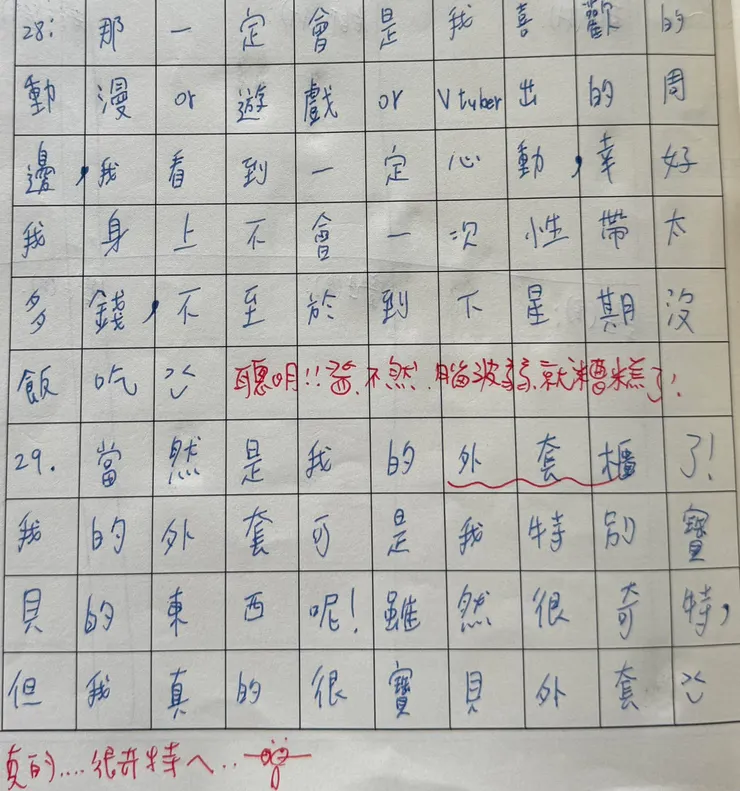 28: 那一定會是我喜歡的
動漫or遊戲or Vtuber出的周
邊,我看到一定心動,幸好
我身上不會一次性帶太
多錢,不至於到下星期沒
飯吃
聰明!! 不然 就糟糕了!
29. 當然是我的外套櫃了!
我的外套可是我特別寶
貝的東西呢!雖然很奇特,
但我真的很寶貝外套
真的....很奇特ㄟ..